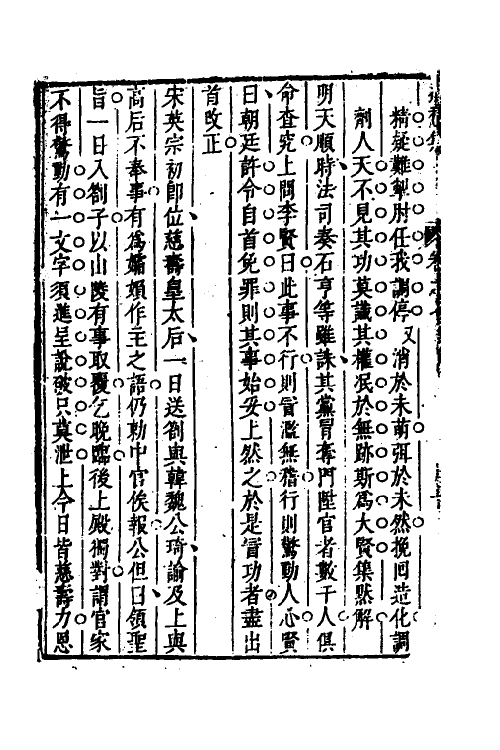 精疑難掣肘任我調停又消於未萌弭於未然挽囘造化調
劑人天不見其功莫識其權泯於無跡斯爲大賢集默解
明天順時法司奏石亨等雖誅其黨冒奪門陞官者數千人俱
命查究上問李賢曰此事不行則冒濫無稽行則驚動人心賢
曰朝廷許令自首免罪則其事始妥上然之於是冒功者盡出
首改正
宋英宗初卽位慈壽皇太后一日送劄與韓魏公琦諭及上與
高后不奉事有爲孀婦作主之語仍勅中官俟報公但曰領聖
旨一日入劄子以山陵有事取覆乞晚臨後上殿獨對謂官家
不得驚動有一文字須進呈說破只莫泄上今日皆慈壽力恩